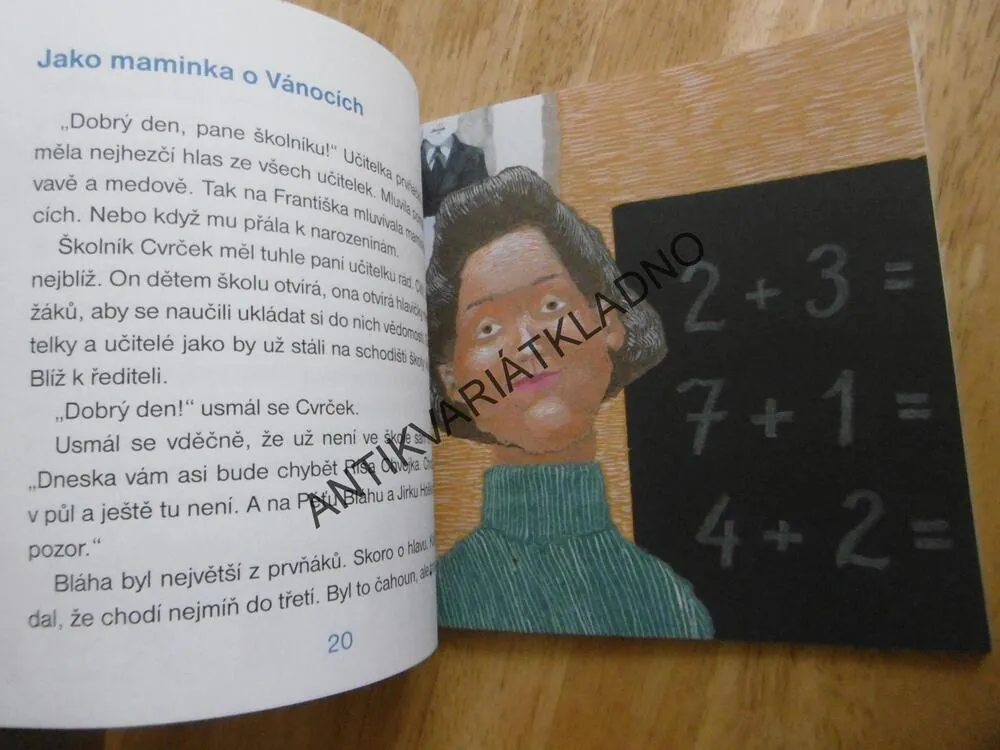 Jako maminka o Vánocích
„Dobrý den, pane školníku!“ Učitelka
měla nejhezčí hlas ze všech učitelek. Mluvila
vavě a medově. Tak na Františka mluvívala
cích. Nebo když mu přála k narozeninám.
Školník Cvrček měl tuhle paní učitelku rád.
nejblíž. On dětem školu otvírá, ona otvírá hlavičky
žáků, aby se naučili ukládat si do nich vědomosti.
telky a učitelé jako by už stáli na schodišti školy
Blíž k řediteli.
„Dobrý den!“ usmál se Cvrček.
Usmál se vděčně, že už není ve škole sám.
„Dneska vám asi bude chybět Ríša Chvojka.
v půl a ještě tu není. A na Péťu Bláhu a Jirku
pozor.“
Bláha byl největší z prvňáků. Skoro o hlavu.
dal, že chodí nejmíň do třetí. Byl to čahoun, ale
20
2 + 3 =
7 + 1 =
4 + 2 =
ANTIKVARIÁTKLADNO